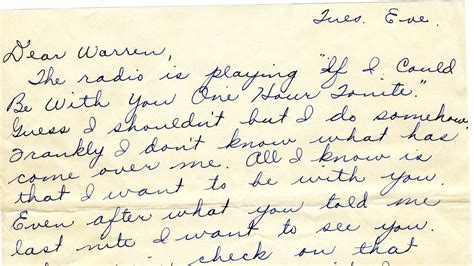 Tues. Eve.
Dear Warren,
The radio is playing "If I Could
Be With You One Hour Tonite."
Guess I shouldn't but I do somehow.
Frankly I don't know what has
come over me. All I know is
that I want to be with you.
Even after what you told me
last nite I want to see you.
check on that